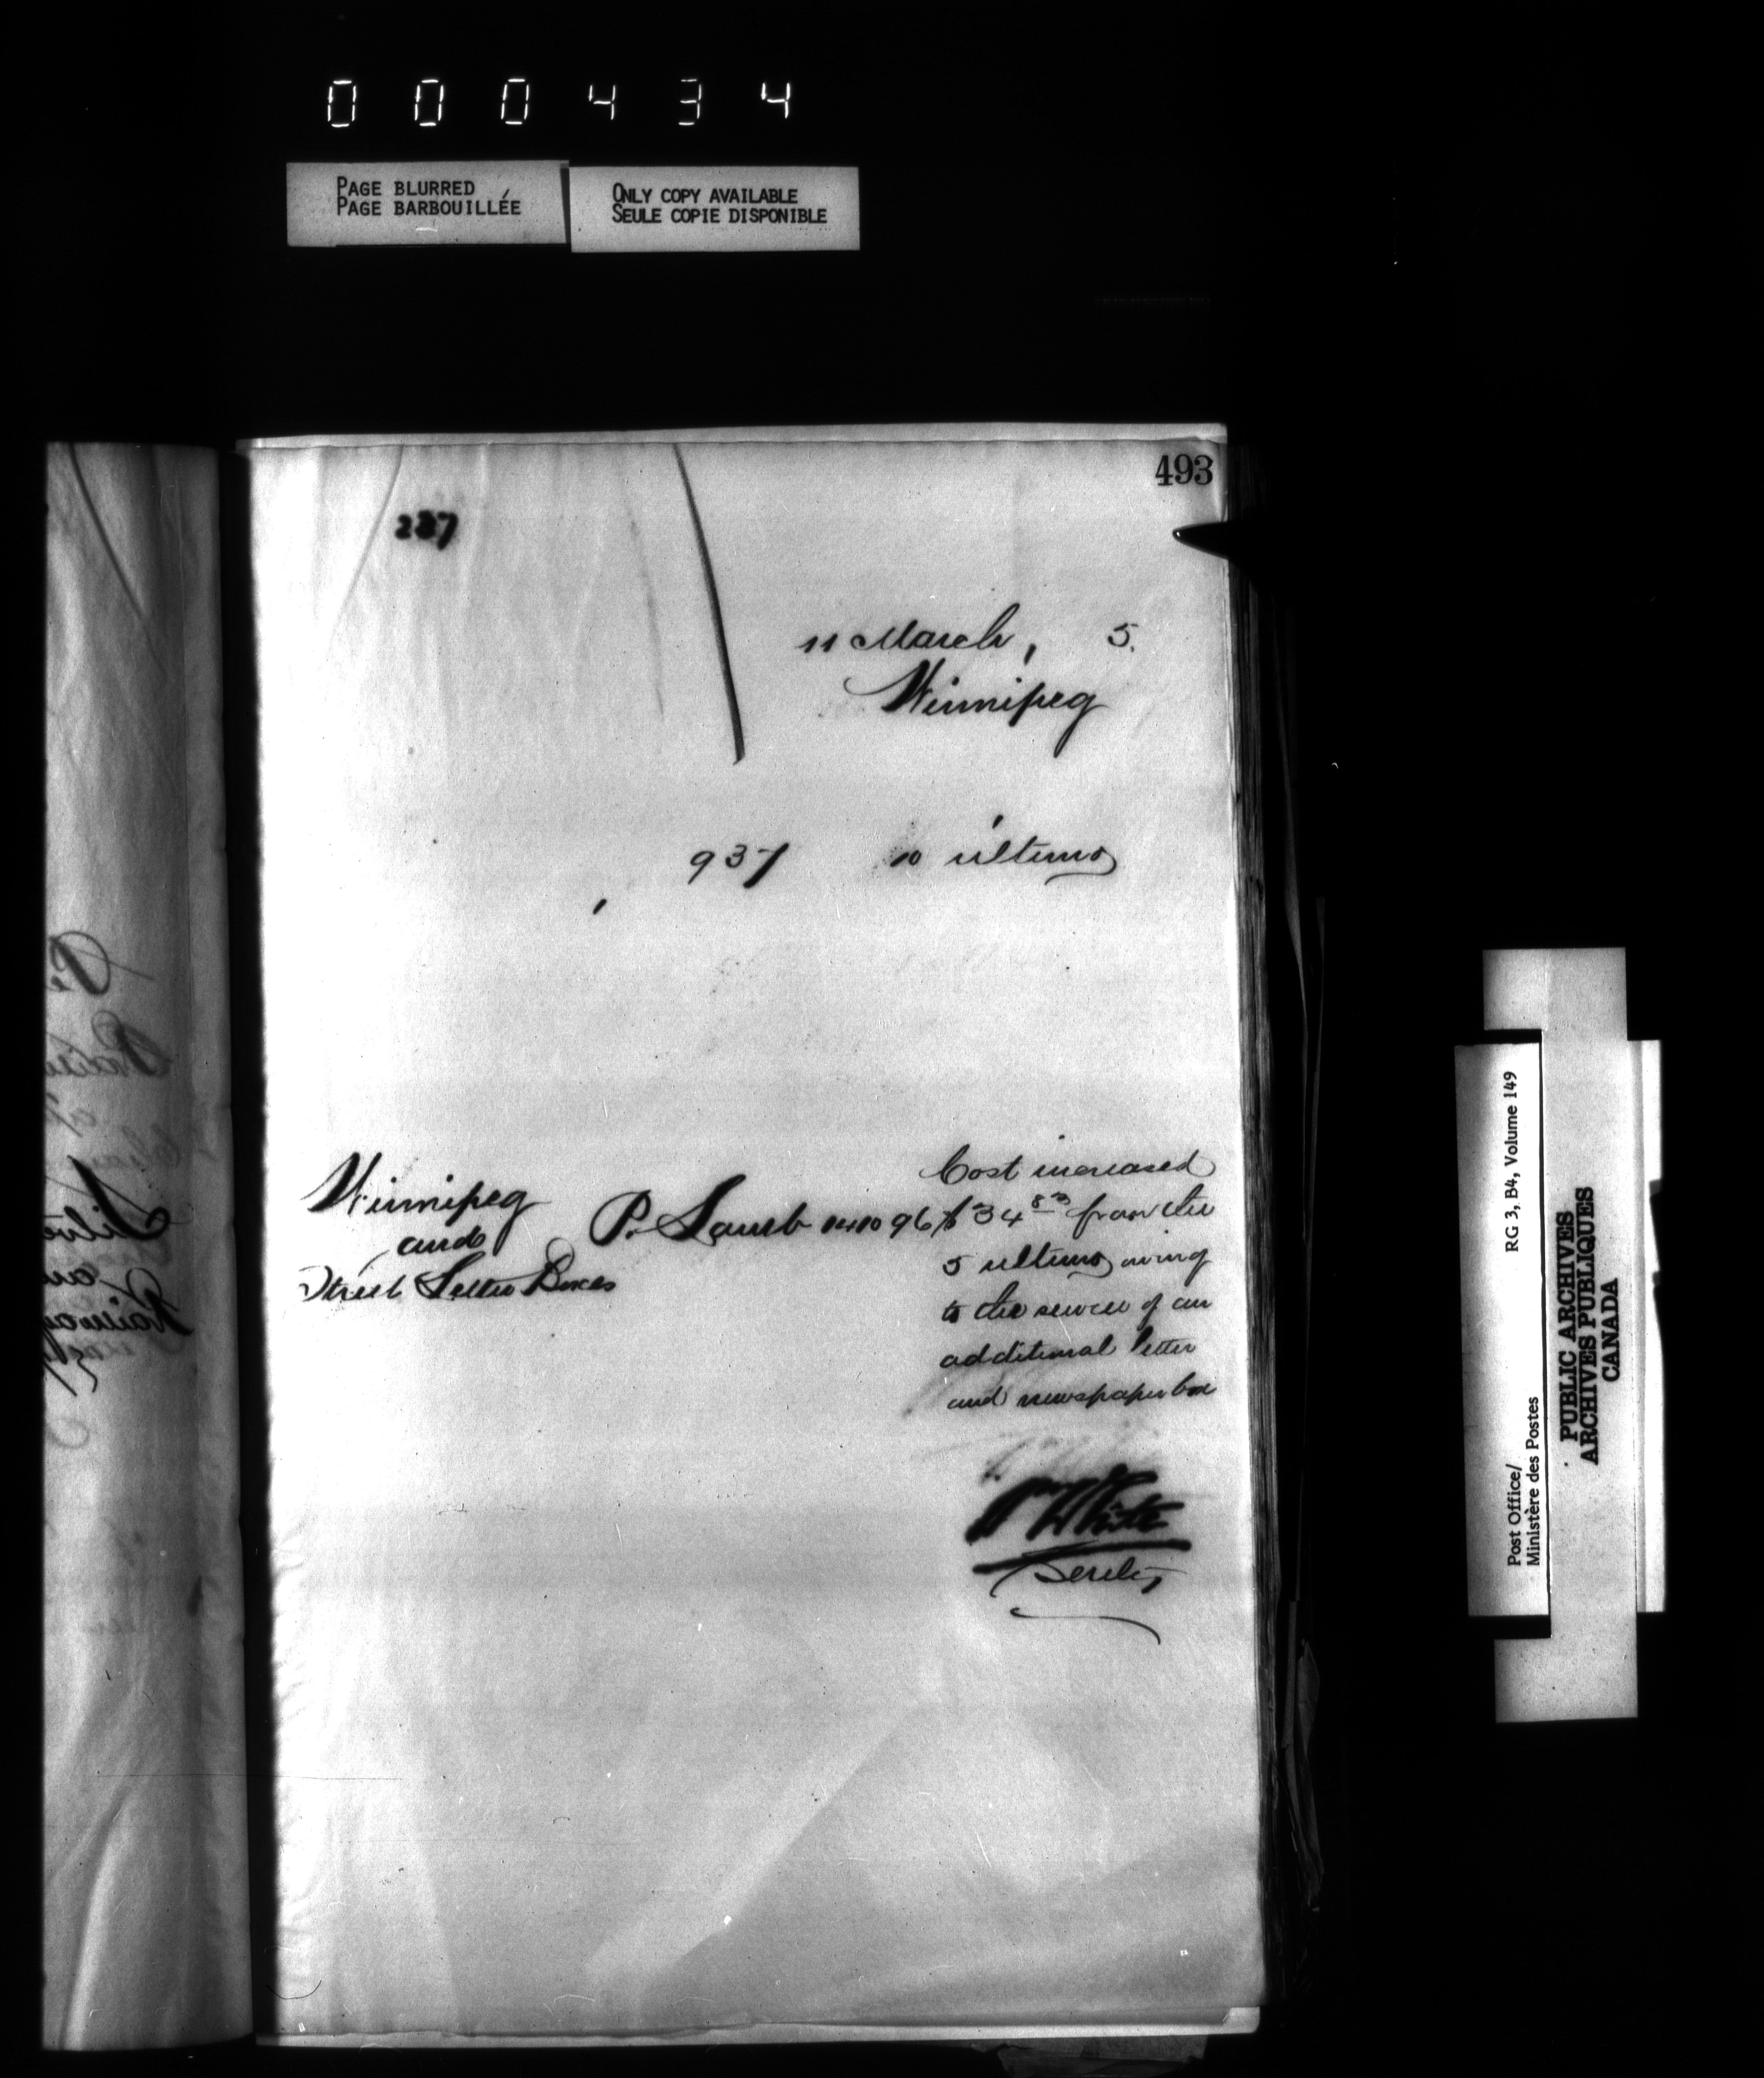 000434
PAGE BLURRED
PAGE BARBOUILLÉE
ONLY COPY AVAILABLE
SEULE COPIE DISPONIBLE
493
237
11 March, 5.
Winnipeg
937 10 ultimo
Winnipeg
and
Street Letter Boxes
P. Lamb 14 10 96
Cost increased
$34 from the
5 ultimo owing
to the service of an
additional letter
and newspaper box
Wm White
Secty
Post Office/
Ministère des Postes
RG 3, B4, Volume 149
PUBLIC ARCHIVES
ARCHIVES PUBLIQUES
CANADA